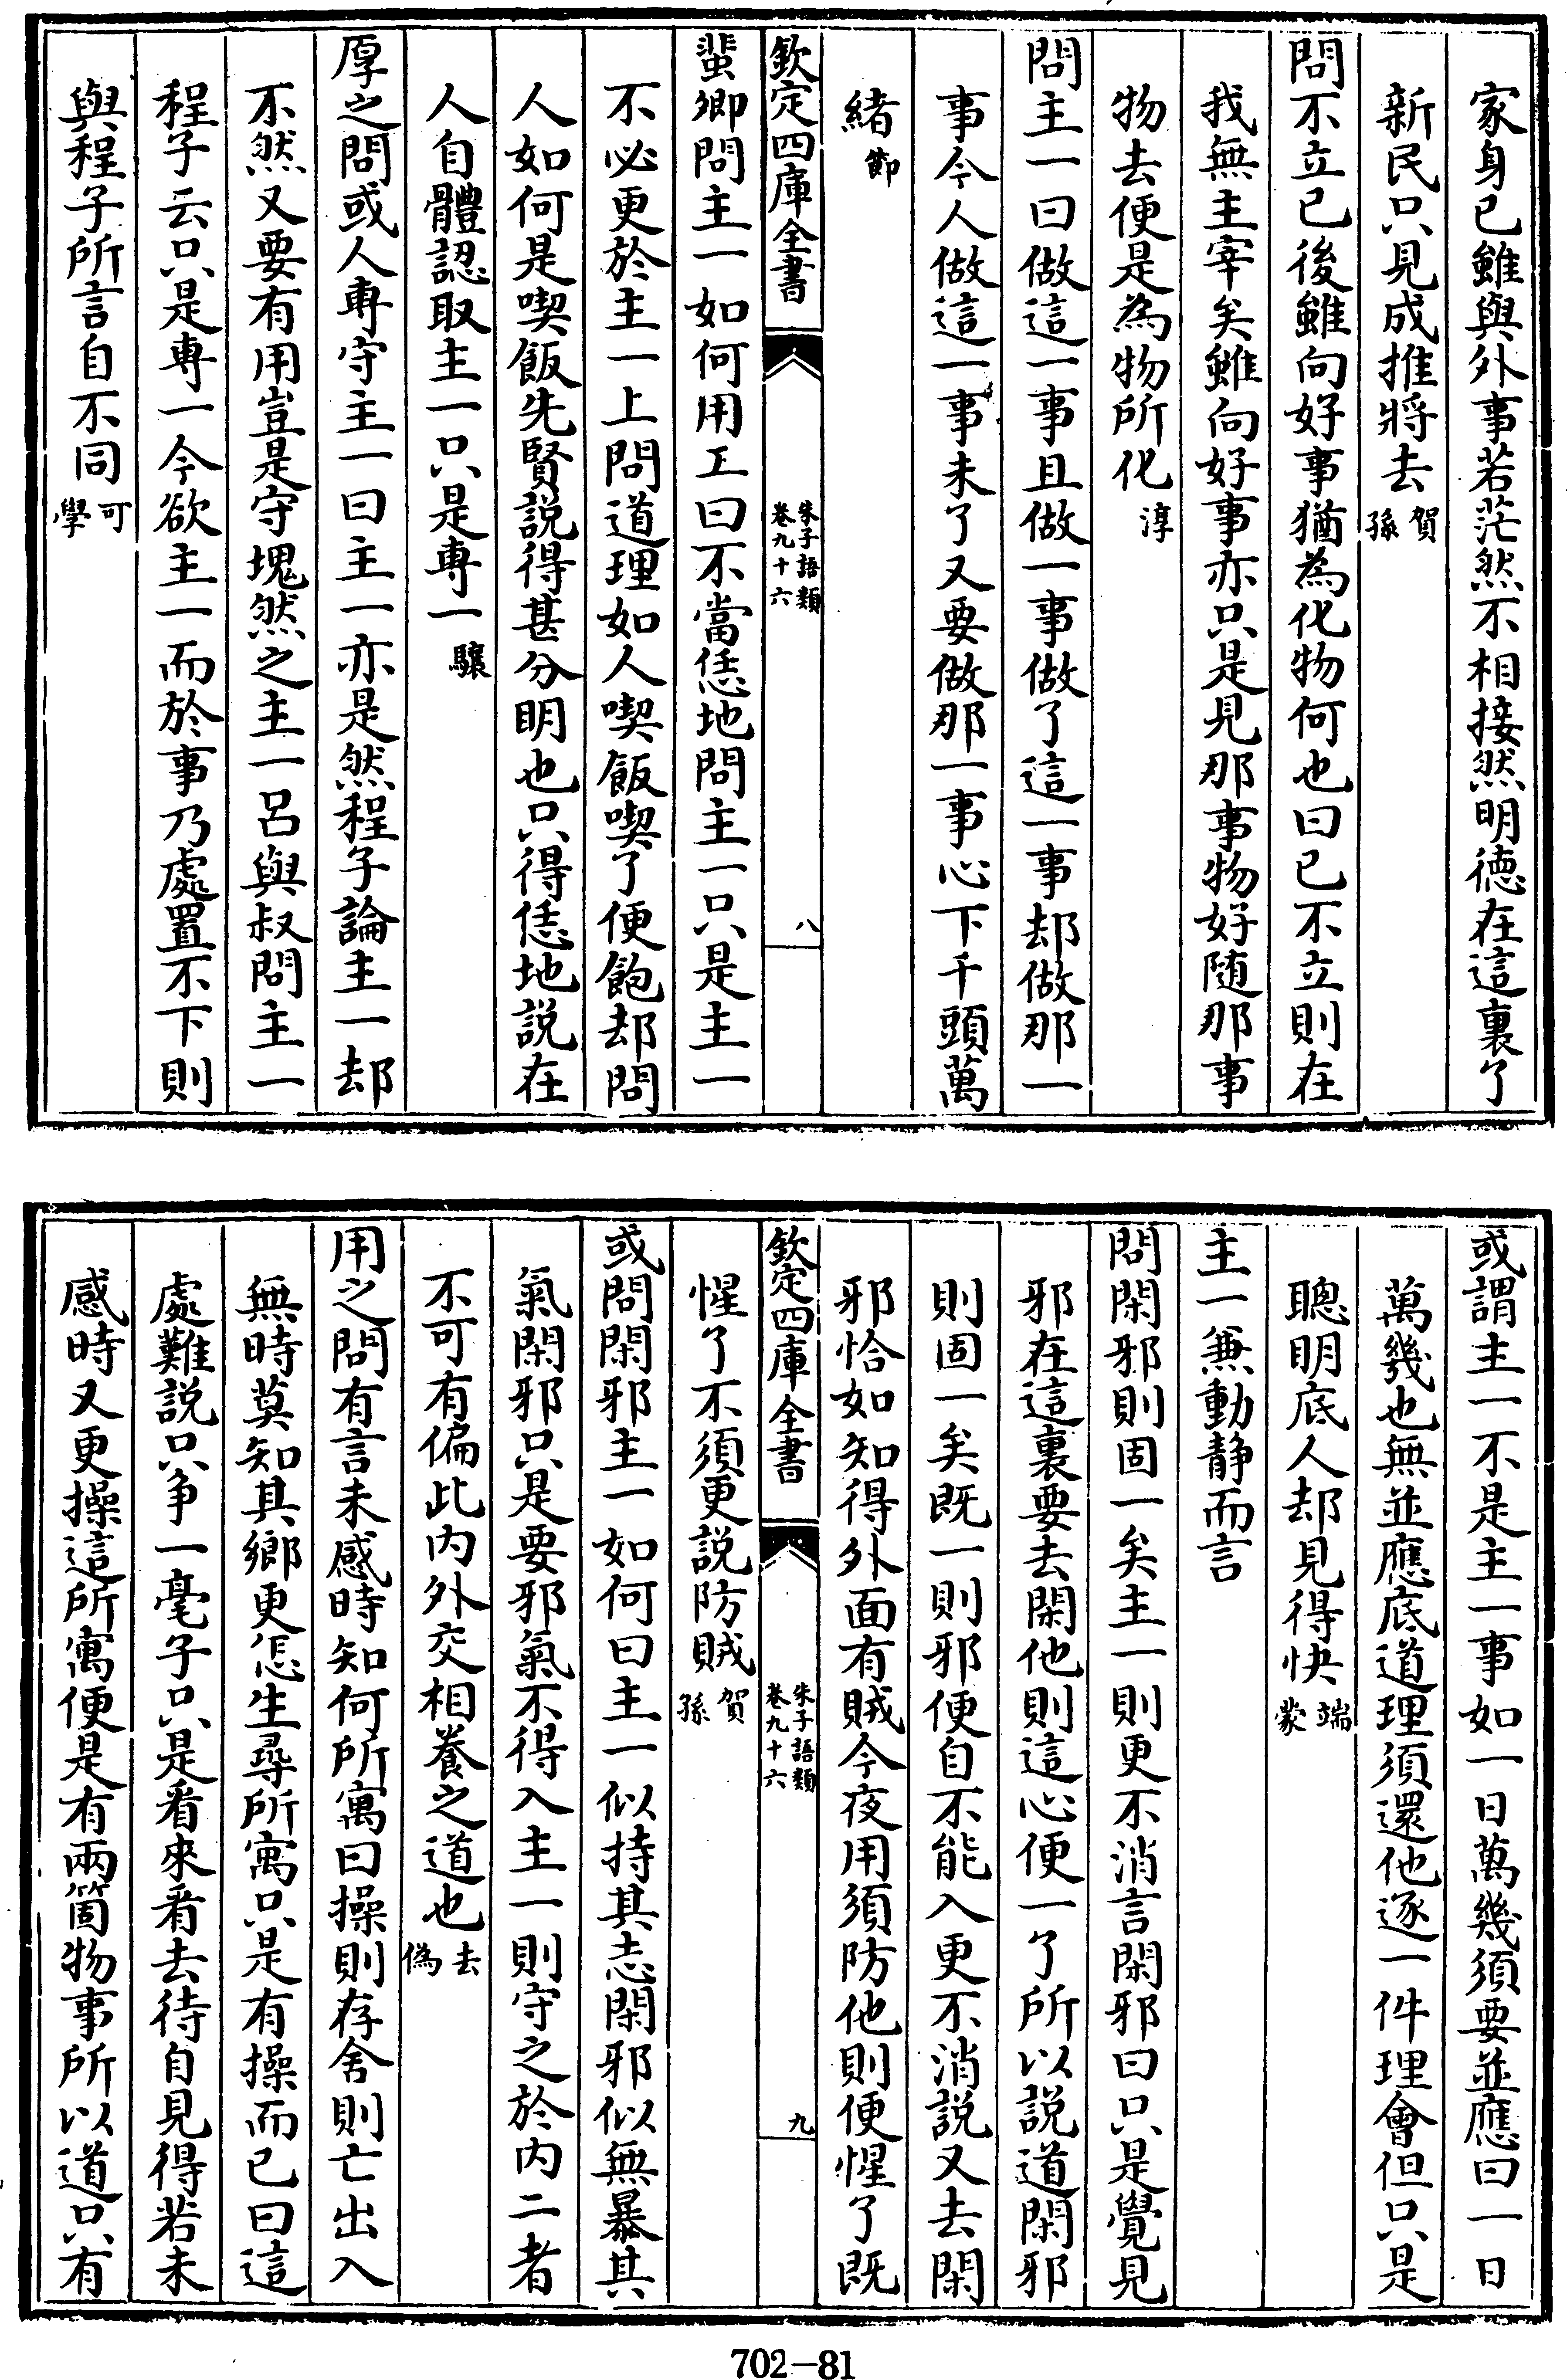 家身已雖與外事若茫然不相接然明徳在這裏了
新民只見成推將去賀孫
問不立已後雖向好事猶為化物何也曰已不立則在
我無主宰矣雖向好事亦只是見那事物好随那事
物去便是為物所化淳
問主一曰做這一事且做一事做了這一事却做那一
事今人做這一事未了又要做那一事心下千頭萬
緒節
欽定四庫全書 朱子語類卷九十六 八
蜚卿問主一如何用工曰不當恁地問主一只是主一
不必更於主一上問道理如人喫飯喫了便飽却問
人如何是喫飯先賢説得甚分明也只得恁地説在
人自體認取主一只是專一驤
厚之問或人專守主一曰主一亦是然程子論主一却
不然又要有用豈是守塊然之主一呂與叔問主一
程子云只是專一今欲主一而於事乃處置不下則
與程子所言自不同可學
或謂主一不是主一事如一日萬幾須要並應曰一日
萬幾也無並應底道理須還他逐一件理會但只是
聰明底人却見得快端蒙
主一兼動静而言
問閑邪則固一矣主一則更不消言閑邪曰只是覺見
邪在這裏要去閑他則這心便一了所以説道閑邪
則固一矣既一則邪便自不能入更不消説又去閑
邪恰如知得外面有賊今夜用須防他則便惺了既
欽定四庫全書 朱子語類卷九十六 九
惺了不須更説防賊賀孫
或問閑邪主一如何曰主一似持其志閑邪似無暴其
氣閑邪只是要邪氣不得入主一則守之於内二者
不可有偏此内外交相養之道也去偽
用之問有言未感時知何所寓曰操則存舍則亡出入
無時莫知其鄉更怎生尋所寓只是有操而已曰這
處難説只争一毫子只是看來看去待自見得若未
感時又更操這所寓便是有兩箇物事所以道只有
702-81